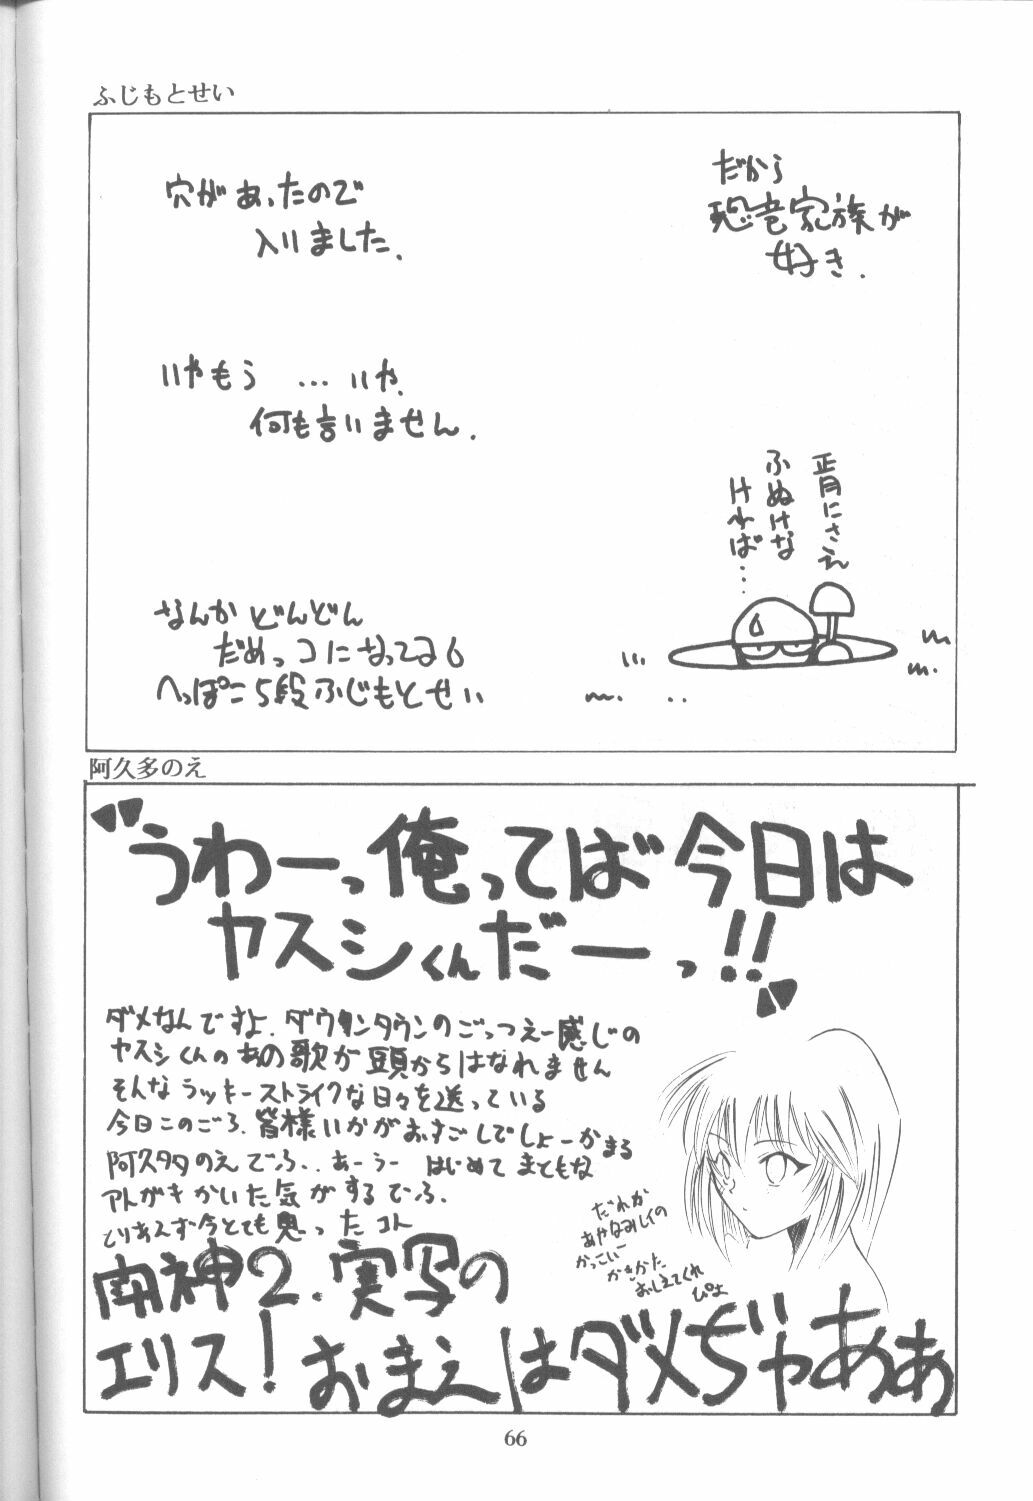 ふじもとせい
だから
恐竜家族が
好き.
穴があったので
入りました.
いやもう …いや.
何も言いません.
正月にさえ
ふぬけな
ければ…
なんかどんどん
だめっコになってる
へっぽこ5段ふじもとせい
阿久多のえ
"うわーっ俺ってば今日は
ヤスシくんだーっ!!"
ダメなんですよ.ダウンタウンのごっつえー感じの
ヤスシくんのあの歌が頭からはなれません
そんなラッキーストライクな日々を送っている
今日このごろ.皆様いかがおすごしでしょーかまる
阿久多のえでふ..あーうー はじめてまともな
アトガキかいた気がするでふ.
とりあえず今とても思ったコト
だれか
あやなみレイの
かっこいー
かきかた
おしえてくれ
ぴよ
南神2.実写の
エリス!おまえはダメぢゃああ
66